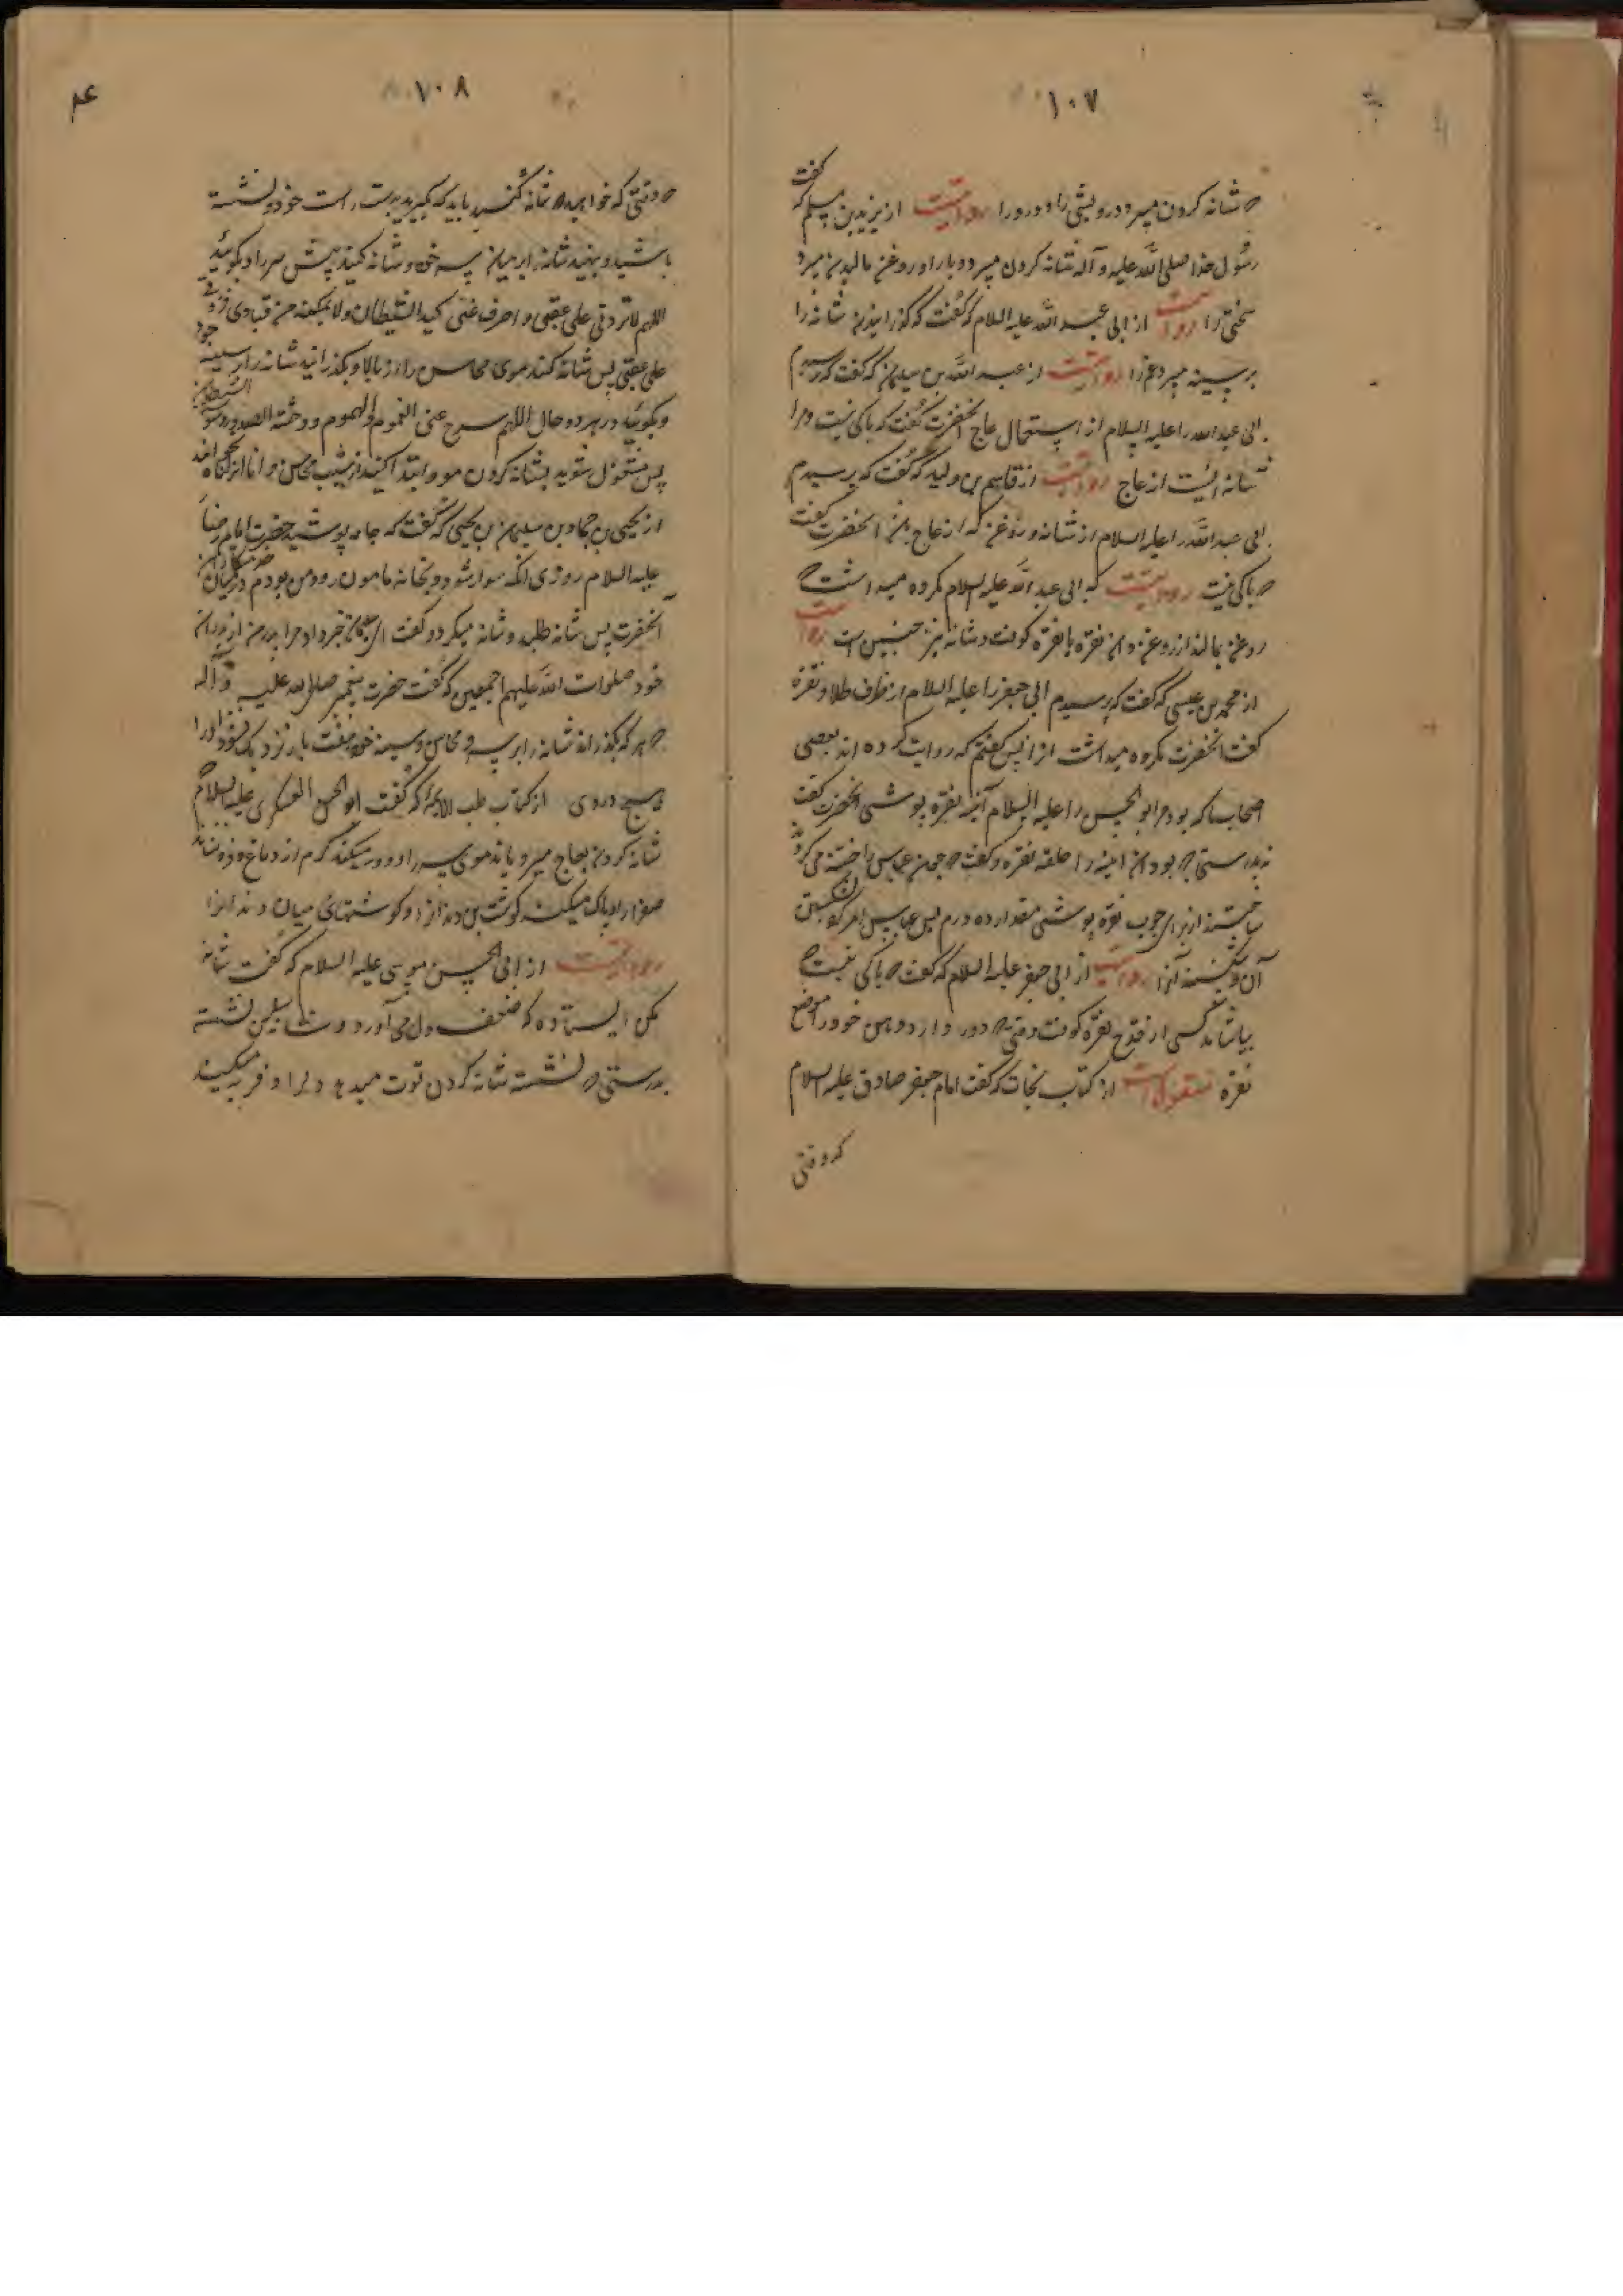 ۱۰۷
که شانه کردن میبرد درویشی را و درد را روایتست از یزید بن مسلم که گفت
رسول خدا صلی الله علیه و آله شانه کردن میبرد وبا را و روغن مالیدن میبرد
سختی را روایتست از ابی عبد الله علیه السلام که گفت که گذرانیدن شانه را
بر سینه میبرد غم را روایتست از عبد الله بن سلیمان که گفت که پرسیدم
ابی عبد الله را علیه السلام از استعمال عاج آنحضرت گفت که باکی نیست و مرا
شانه ایست از عاج روایتست از قاسم بن ولید که گفت که پرسیدم
ابی عبد الله را علیه السلام از شانه و روغن که از عاج آنحضرت گفت
که باکی نیست روایتست که ابی عبد الله علیه السلام مکروه میداشت که
روغن بمالند از روغن نقره با نقره کوفت و شانه نیز چنین است روایتست
از محمد بن عیسی که گفت که پرسیدم ابی جعفر را علیه السلام از ظرف طلا و نقره
گفت آنحضرت مکروه میداشت از آن پس گفتم که روایت کرده اند بعضی
اصحاب ما که بود مر ابو الحسن را علیه السلام آینه نقره پوشی آنحضرت گفت
نه بدرستی که بود آن آینه را حلقه نقره و گفت که چون عباس را ختنه میکرد
ساختند از برای چوب نقره پوشی مقدار ده درم پس عباس امر کرد بشکستن
آن و شکستند آنرا روایتست از ابی جعفر علیه السلام که گفت که باکی نیست که
بیاشامد کسی از قدح نقره کوفت وقتی که دور دارد دهن خود را از موضع
نقره منقولست از کتاب نجات که گفت امام جعفر صادق علیه السلام
که وقتی
۱۰۸
که وقتی که خواهید که شانه کنید باید که بگیرید بدست راست خود و نشسته
باشید و بنهید شانه را بر میان سر خود و شانه کنید پیش سر را و بگوئید
اللهم لا تردنی علی عقبی و اصرف عنی کید الشیطان ولا تمکنه من قیادی فیردنی
علی عقبی پس شانه کنید موی محاسن را از بالا و بگذرانید شانه را بر سینه خود
و بگوئید در هر دو حال اللهم سرح عنی الغموم والهموم ووحشة الصدور ووسوسة الشیطان
پس مشغول شوید بشانه کردن مو و ابتدا کنید از شیب محاسن و انا انزلناه
از یحیی بن حماد بن سلیمان بن یحیی که گفت که جامه پوشید حضرت امام رضا
علیه السلام روزی آنکه سوار شود و بخانه مامون رود من بودم در میان خدمتکاران
آنحضرت پس شانه طلبید و شانه میکرد و گفت خبر داد مرا پدر من از پدران
خود صلوات الله علیهم اجمعین که گفت حضرت پیغمبر صلی الله علیه و آله
که هر که بگذراند شانه را بر سر و محاسن و سینه خود هفت بار نزدیک نشود او را
هیچ دردی از کتاب طب الائمه که گفت ابو الحسن العسکری علیه السلام
شانه کردن بعاج میرویاند موی سر را و دور میکند کرم از دماغ و فرو نشاند
صفرا را و پاک میکند گوشت بن دندانرا و گوشتهای میان دندانرا
روایتست از ابی الحسن موسی علیه السلام که گفت شانه
مکن ایستاده که ضعف دل می آورد و شانه کن نشسته
بدرستی که نشسته شانه کردن قوت میدهد دلرا و فربه میکند